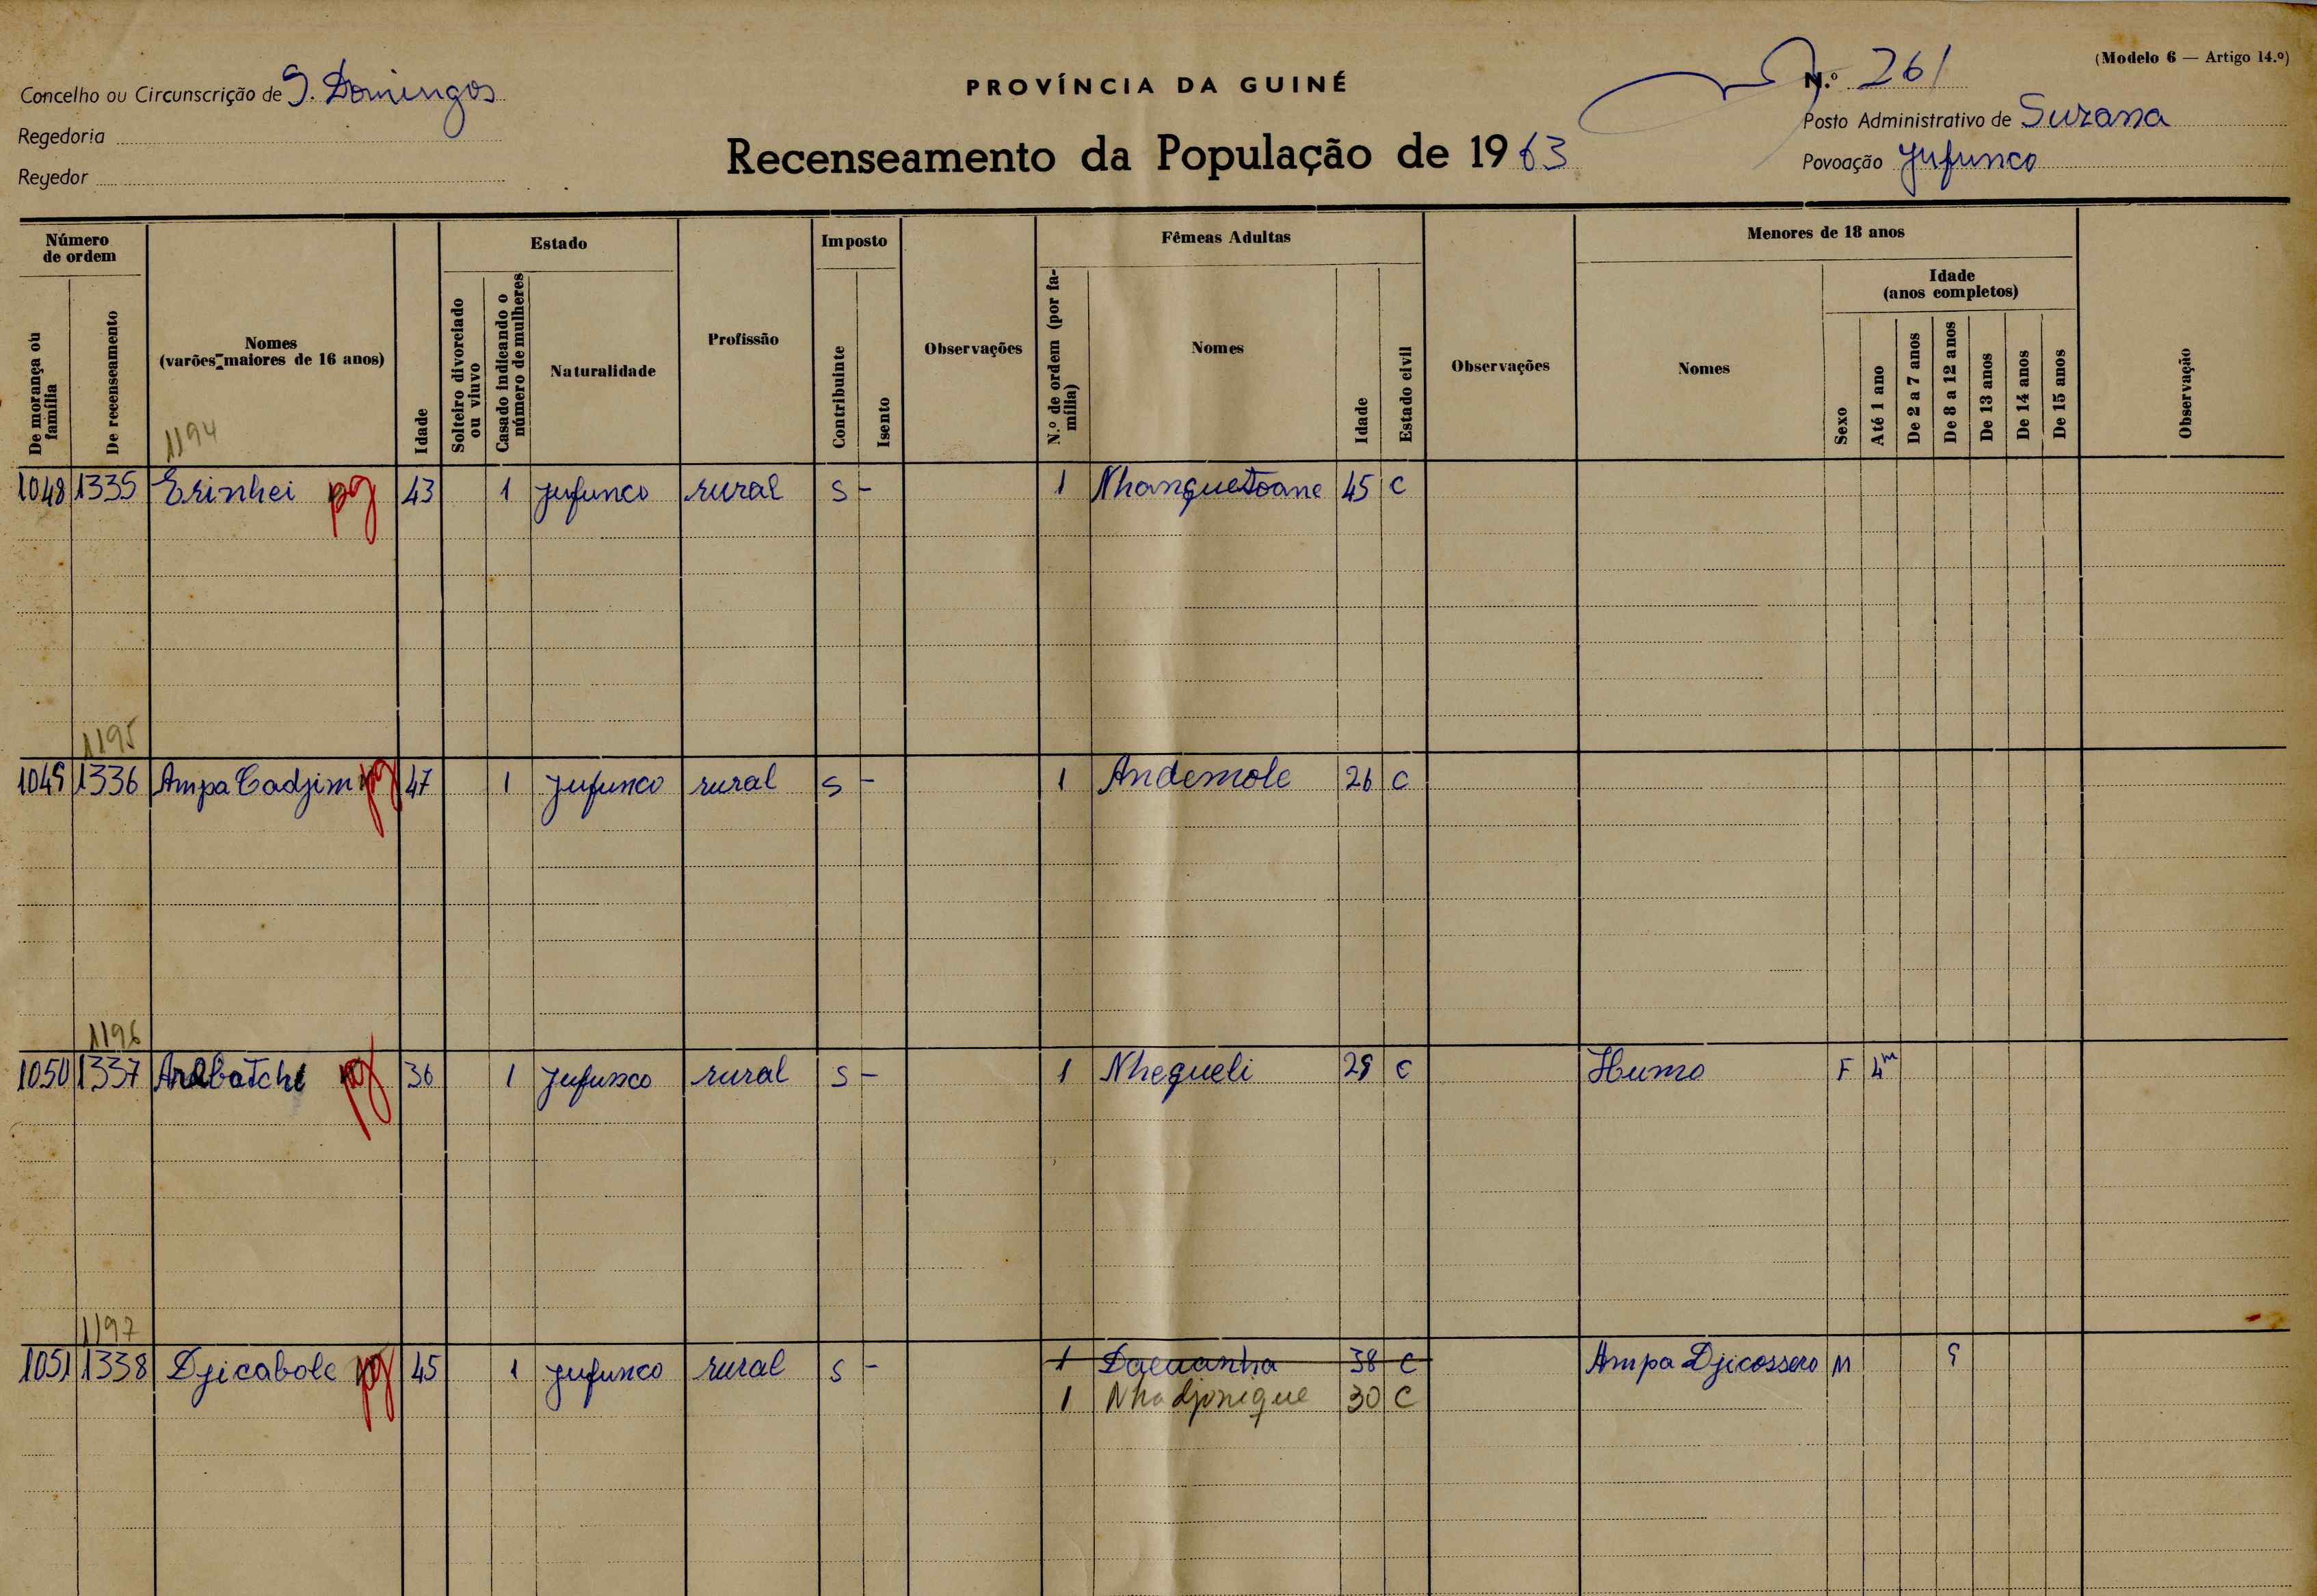 (Modelo 6 — Artigo 14.º)
Concelho ou Circunscrição de S. Domingos
PROVÍNCIA DA GUINÉ
N.º 261
Regedoria
Posto Administrativo de Suzana
Recenseamento da População de 1963
Regedor
Povoação Jufunco
Número de ordem
De morança ou família
De recenseamento
Nomes
(varões maiores de 16 anos)
Idade
Estado
Solteiro divorciado ou viuvo
Casado indicando o número de mulheres
Naturalidade
Profissão
Imposto
Contribuinte
Isento
Observações
Fêmeas Adultas
N.º de ordem (por família)
Nomes
Idade
Estado civil
Observações
Menores de 18 anos
Nomes
Sexo
Idade
(anos completos)
Até 1 ano
De 2 a 7 anos
De 8 a 12 anos
De 13 anos
De 14 anos
De 15 anos
Observação
1194
1048 1335 Erinhei pg 43 1 Jufunco rural S - 1 Nhanquetoane 45 C
1195
1049 1336 Ampa Cadjim pg 47 1 Jufunco rural S - 1 Andemole 26 C
1196
1050 1337 pg 36 1 Jufunco rural S - 1 Nhequeli 29 C Humo F 4m
1197
1051 1338 Djicabole pg 45 1 Jufunco rural S - 1 38 C Ampa Djicossero M 9
1 Nhadjonique 30 C